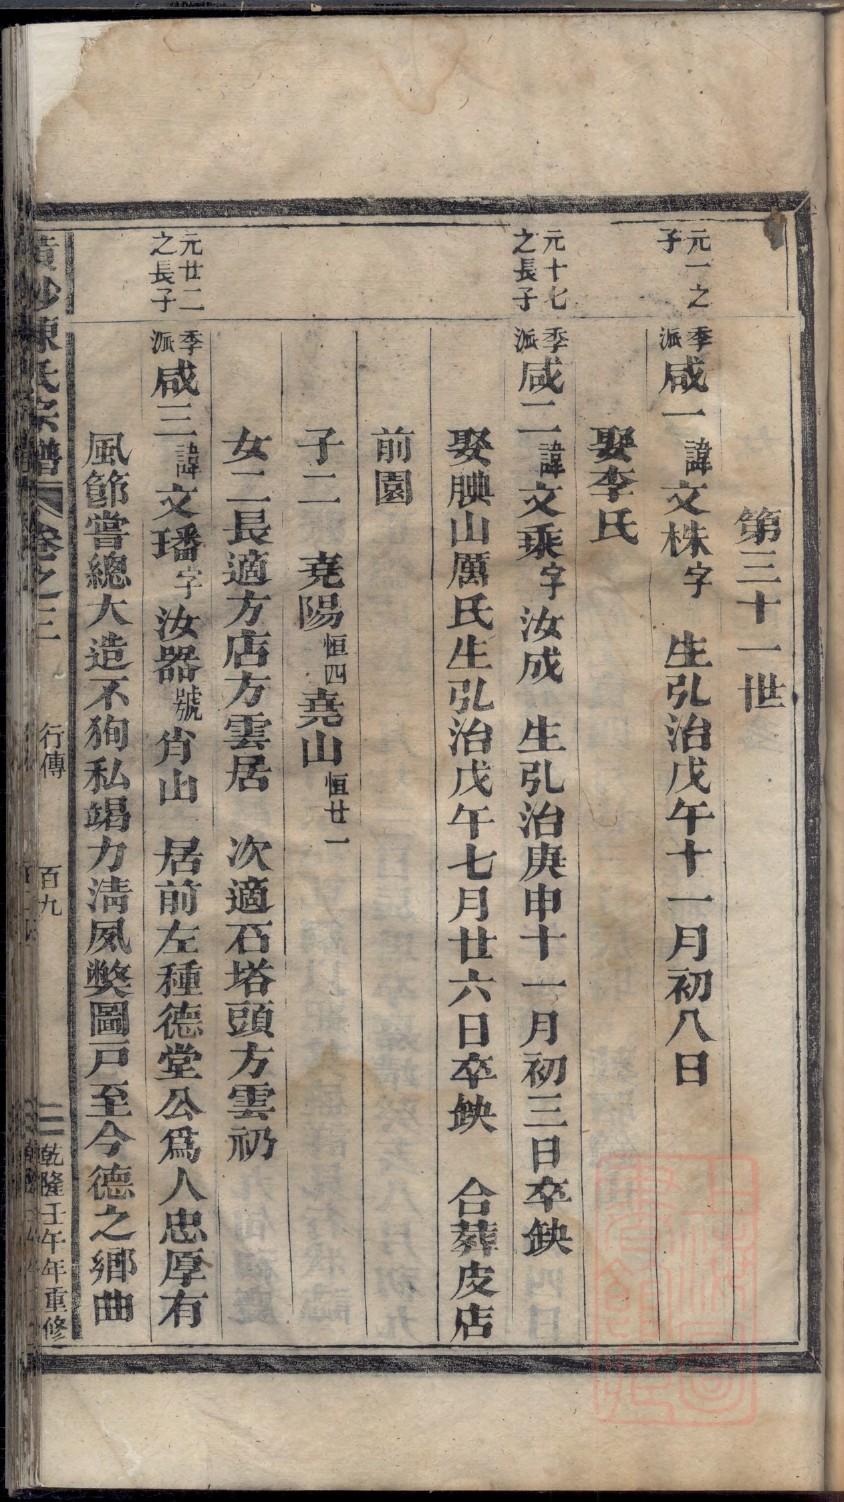 第三十一世
元一之子
季派咸一諱文株字　生弘治戊午十一月初八日
娶李氏
元十七之長子
季派咸二諱文乘字汝成　生弘治庚申十一月初三日卒缺
娶腆山厲氏生弘治戊午七月廿六日卒缺　合葬皮店
前園
子二　堯陽恒四堯山恒廿一
女二長適方店方雲居　次適石塔頭方雲礽
元廿二之長子
季派咸三諱文璠字汝器號肖山　居前左種德堂公爲人忠厚有
風節嘗總大造不狥私竭力淸夙獘圖戸至今德之鄉曲
黃沙陳氏宗譜　卷之三　行傳　百九　乾隆壬午年重修